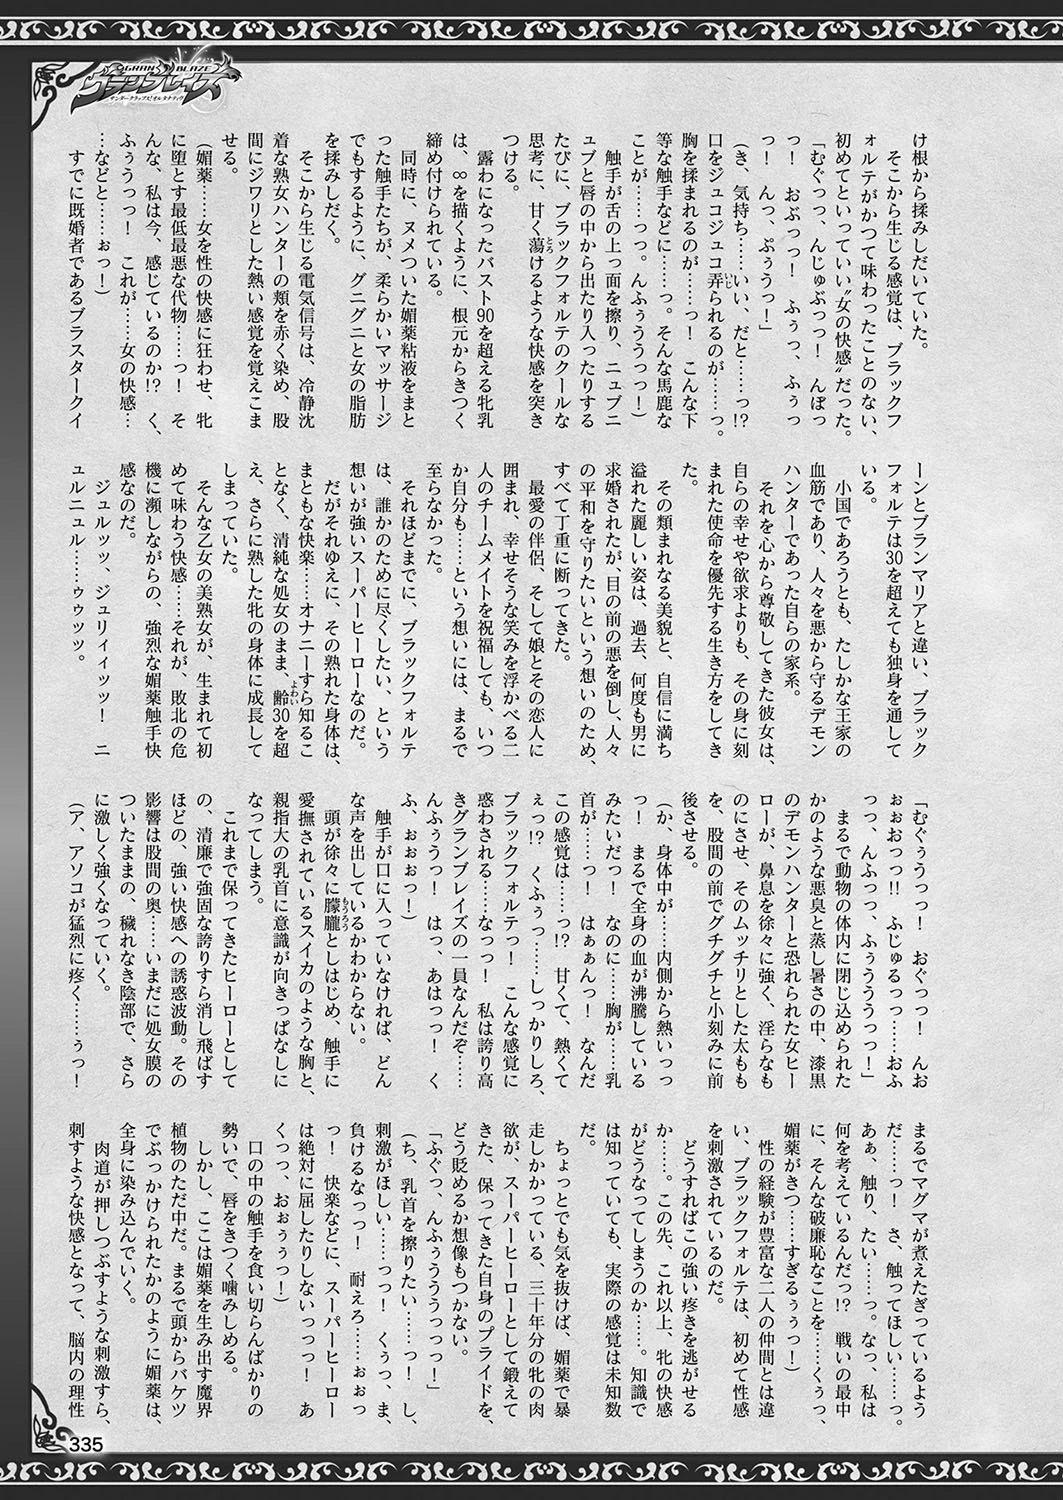 GRAN BLAZE
グランブレイズ
け根から揉みしだいていた。
　そこから生じる感覚は、ブラックフ
ォルテがかつて味わったことのない、
初めてといっていい〝女の快感〟だった。
「むぐっっ、んじゅぶっっ！　んぽっ
っ！　おぶっっ！　ふぅっ、ふぅっ
っ！　んっ、ぷぅうっ！」
（き、気持ち……いい、だと……っ!?
口をジュコジュコ弄られるのが……っ。
胸を揉まれるのが……っ！　こんな下
等な触手などに……っ。そんな馬鹿な
ことが……っっ。んふぅううっっ！）
　触手が舌の上っ面を擦り、ニュブニ
ュブと唇の中から出たり入ったりする
たびに、ブラックフォルテのクールな
思考に、甘く蕩けるような快感を突き
つける。
　露わになったバスト90を超える牝乳
は、∞を描くように、根元からきつく
締め付けられている。
　同時に、ヌメついた媚薬粘液をまと
った触手たちが、柔らかいマッサージ
でもするように、グニグニと女の脂肪
を揉みしだく。
　そこから生じる電気信号は、冷静沈
着な熟女ハンターの頬を赤く染め、股
間にジワリとした熱い感覚を覚えこま
せる。
（媚薬……女を性の快感に狂わせ、牝
に堕とす最低最悪な代物……っ！　そ
んな、私は今、感じているのか!?　く、
ふぅうっっ！　これが……女の快感…
…などと……ぉっ！）
　すでに既婚者であるブラスタークイ
ーンとブランマリアと違い、ブラック
フォルテは30を超えても独身を通して
いる。
　小国であろうとも、たしかな王家の
血筋であり、人々を悪から守るデモン
ハンターであった自らの家系。
　それを心から尊敬してきた彼女は、
自らの幸せや欲求よりも、その身に刻
まれた使命を優先する生き方をしてき
た。
　その類まれなる美貌と、自信に満ち
溢れた麗しい姿は、過去、何度も男に
求婚されたが、目の前の悪を倒し、人々
の平和を守りたいという想いのため、
すべて丁重に断ってきた。
　最愛の伴侶、そして娘とその恋人に
囲まれ、幸せそうな笑みを浮かべる二
人のチームメイトを祝福しても、いつ
か自分も……という想いには、まるで
至らなかった。
　それほどまでに、ブラックフォルテ
は、誰かのために尽くしたい、という
想いが強いスーパーヒーローなのだ。
　だがそれゆえに、その熟れた身体は、
まともな快楽……オナニーすら知るこ
となく、清純な処女のまま、齢30を超
え、さらに熟した牝の身体に成長して
しまっていた。
　そんな乙女の美熟女が、生まれて初
めて味わう快感……それが、敗北の危
機に瀕しながらの、強烈な媚薬触手快
感なのだ。
　ジュルッッ、ジュリィィッッ！　ニ
ュルニュル……ゥゥッッ。
「むぐぅうっっ！　おぐっっ！　んお
ぉぉおっっ!!　ふじゅるっっ……おふ
っっ、んふっっ、ふぅううっっ！」
　まるで動物の体内に閉じ込められた
かのような悪臭と蒸し暑さの中、漆黒
のデモンハンターと恐れられた女ヒー
ローが、鼻息を徐々に強く、淫らなも
のにさせ、そのムッチリとした太もも
を、股間の前でグチグチと小刻みに前
後させる。
（か、身体中が……内側から熱いっっ
っ！　まるで全身の血が沸騰している
みたいだっ！　なのに……胸が……乳
首が……っ！　はぁぁんっ！　なんだ
この感覚は……っ!?　甘くて、熱くて
ぇっ!?　くふぅっ……しっかりしろ、
ブラックフォルテっ！　こんな感覚に
惑わされる……なっっ！　私は誇り高
きグランブレイズの一員なんだぞ……
んふぅうっ！　はっ、あはっっ！　く
ふ、ぉぉぉっ！）
　触手が口に入っていなければ、どん
な声を出しているかわからない。
　頭が徐々に朦朧としはじめ、触手に
愛撫されているスイカのような胸と、
親指大の乳首に意識が向きっぱなしに
なってしまう。
　これまで保ってきたヒーローとして
の、清廉で強固な誇りすら消し飛ばす
ほどの、強い快感への誘惑波動。その
影響は股間の奥……いまだに処女膜の
ついたままの、穢れなき陰部で、さら
に激しく強くなっていく。
（ア、アソコが猛烈に疼く……ぅっ！
まるでマグマが煮えたぎっているよう
だ……っ！　さ、触ってほしい……っ。
あぁ、触り、たい……っ。なっ、私は
何を考えているんだっ!?　戦いの最中
に、そんな破廉恥なことを……くぅっ、
媚薬がきつ……すぎるぅぅっ！）
　性の経験が豊富な二人の仲間とは違
い、ブラックフォルテは、初めて性感
を刺激されているのだ。
　どうすればこの強い疼きを逃がせる
か……。この先、これ以上、牝の快感
がどうなってしまうのか……。知識で
は知っていても、実際の感覚は未知数
だ。
　ちょっとでも気を抜けば、媚薬で暴
走しかかっている、三十年分の牝の肉
欲が、スーパーヒーローとして鍛えて
きた、保ってきた自身のプライドを、
どう貶めるか想像もつかない。
「ふぐっ、んふぅうううっっっ！」
（ち、乳首を擦りたい……っ！　し、
刺激がほしい……っっ！　くぅっ、ま、
負けるなっっ！　耐えろ……ぉぉっ
っ！　快楽などに、スーパーヒーロー
は絶対に屈したりしないっっっ！　あ
くっっ、おぉぅぅっ！）
　口の中の触手を食い切らんばかりの
勢いで、唇をきつく噛みしめる。
　しかし、ここは媚薬を生み出す魔界
植物のただ中だ。まるで頭からバケツ
でぶっかけられたかのように媚薬は、
全身に染み込んでいく。
　肉道が押しつぶすような刺激すら、
刺すような快感となって、脳内の理性
335